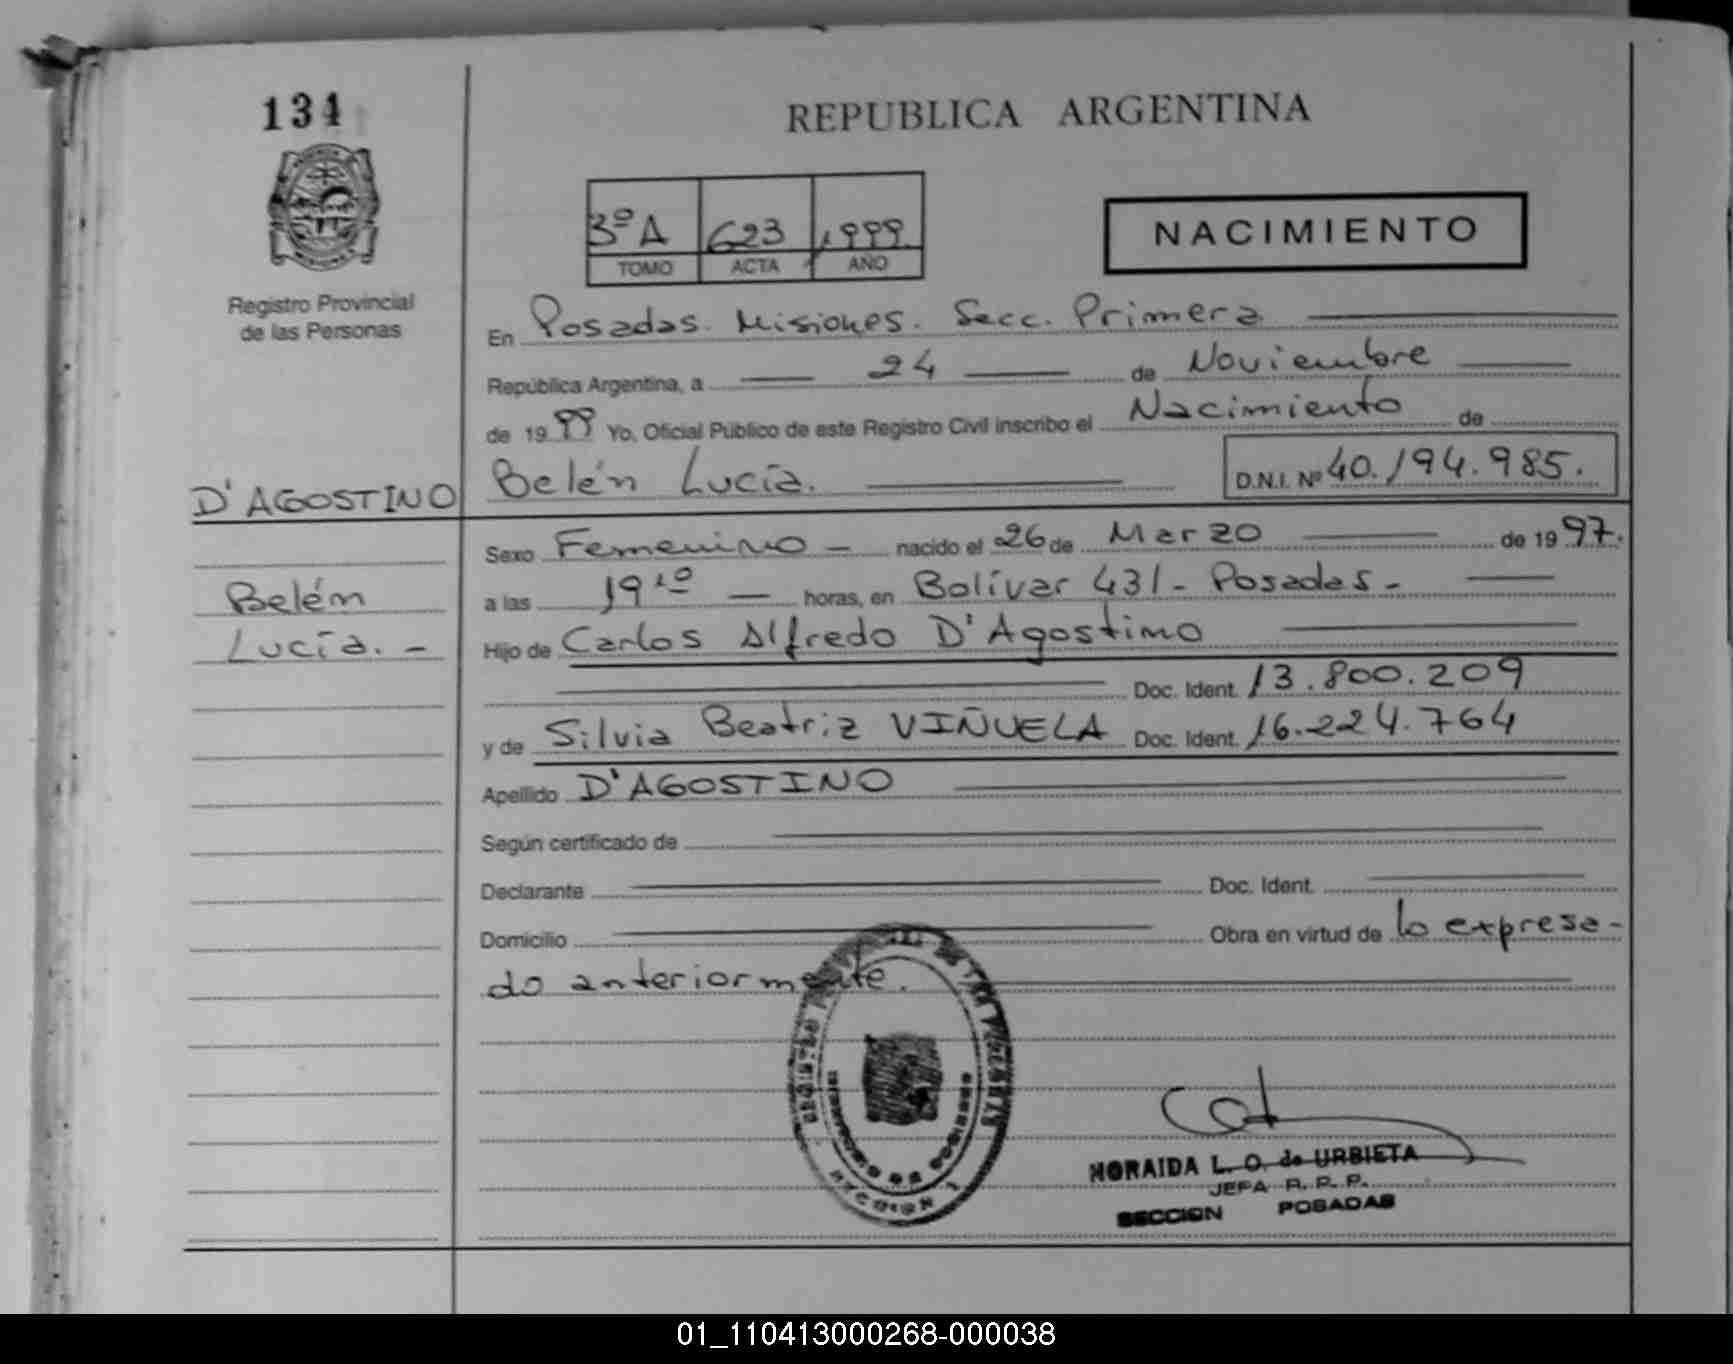 134
REPUBLICA ARGENTINA
3º A 623 1999
TOMO ACTA AÑO
NACIMIENTO
Registro Provincial
de las Personas
En Posadas. Misiones. Secc. Primera
República Argentina, a 24 de Noviembre
de 1999 Yo, Oficial Público de este Registro Civil inscribo el Nacimiento de
D'AGOSTINO Belén Lucía. D.N.I. Nº 40.194.985.
Sexo Femenino - nacido el 26 de Marzo de 1997.
Belén
a las 19¹⁰ horas, en Bolívar 431 - Posadas -
Lucía. -
Hijo de Carlos Alfredo D'Agostino
Doc. Ident. 13.800.209
y de Silvia Beatriz VIÑUELA Doc. Ident. 16.224.764
Apellido D'AGOSTINO
Según certificado de
Declarante Doc. Ident.
Domicilio Obra en virtud de lo expresa-
do anteriormente.
SECCION 1
NORAIDA L. O. de URBIETA
JEFA R. P. P.
SECCION POSADAS
01_110413000268-000038